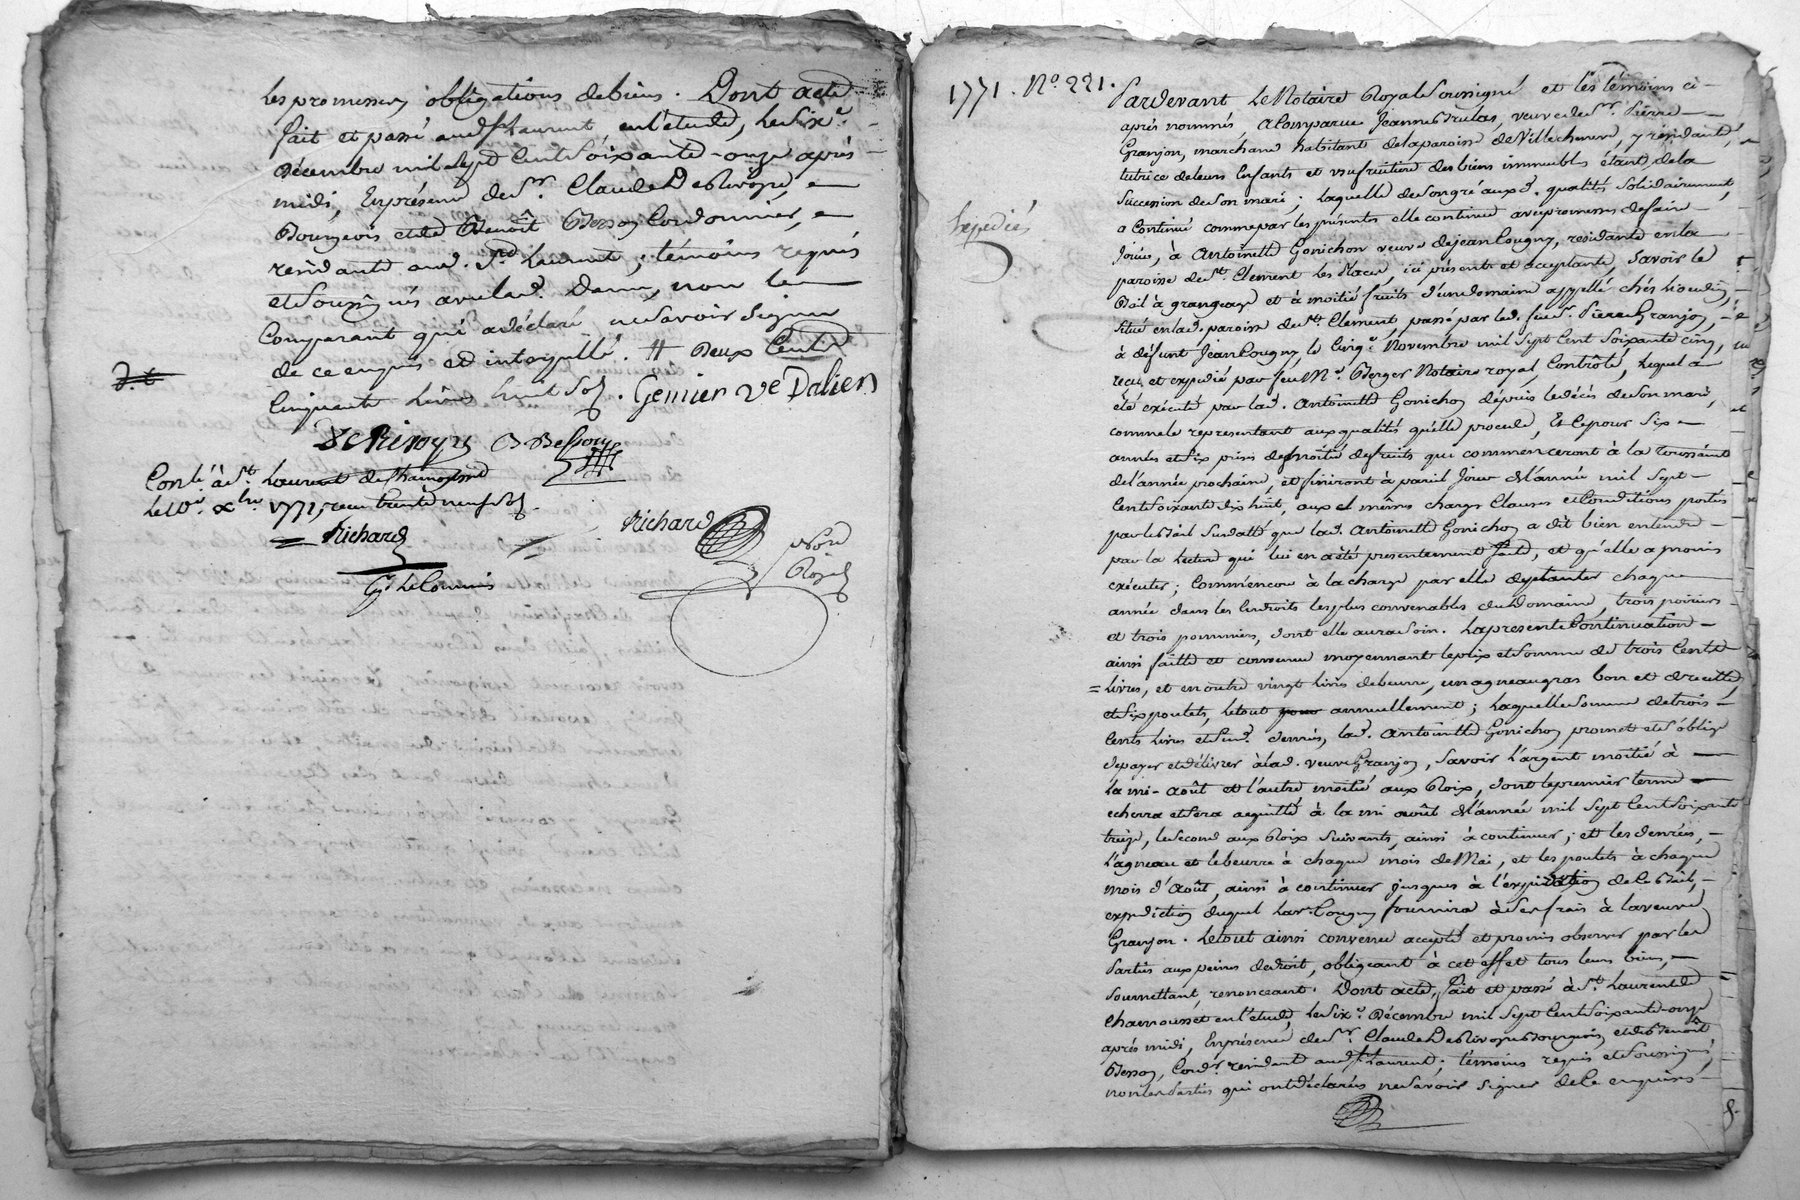 les promesses, obligations de biens. Dont acte
fait et passé aud. St Laurent, en l'étude, le six.e
décembre mil sept cent soixante-onze après-
midi, En présence de Sr. Claude Desrivoyre,
Bourgeois et de Benoît Besson Cordonnier,
résidants aud. St Laurent, témoins requis
et soussignés avec lad. Dame, non le
Comparant qui a déclaré ne savoir signer
de ce enquis et interpellé. # Deux Cents
Cinquante livres huit sols. Genier ve Dalien
B Besson
Con.lé à St. Laurent de Chamousset
le 10e. Xbre 1771, reçu trente neuf sols.
Richard
Richard
No.re
Royal
1771. No. 221.
Expedié
Pardevant Le Notaire Royal Soussigné et les témoins ci-
après nommés, a Comparue Jeanne Brulas, veuve de Sr. Pierre
Granjon, marchand habitant de la paroisse de Villechenève, y résidante,
tutrice de leurs Enfants et usufruitière des biens immeubles étant de la
succession de son mari; laquelle de son gré auxd. qualités solidairement,
a Continué comme par les présentes elle continue avec promesse de faire
Jouir, à Antoinette Gonichon veuve de Jean Cougny, résidante en la
paroisse de St. Clément les Places, ici présente et acceptante, Savoir le
Bail à grangeage et à moitié fruits d'un domaine appellé chés
situé en lad. paroisse de St. Clément, passé par led. feu Sr. Pierre Granjon,
à défunt Jean Cougny, le cinq.e Novembre mil sept cent soixante cinq,
reçu et expédié par feu Me. Berger Notaire royal, Contrôlé, lequel a
été exécuté par lad. Antoinette Gonichon depuis le décès de son mari,
comme le représentant aux qualités qu'elle procède, Et ce pour Six
années et Six prises de moitié de fruits qui commenceront à la toussaint
de l'année prochaine, et finiront à pareil Jour de l'année mil sept
cent soixante dix huit, aux mêmes charges Clauses et Conditions portées
par le Bail susdatté que lad. Antoinette Gonichon a dit bien entendre
par la lecture qui lui en a été présentement faite, et qu'elle a promis
exécuter; Comm'encore à la charge par elle de planter chaque
année dans les Endroits les plus convenables du Domaine, trois poiriers
et trois pommiers, dont elle aura soin. La présente Continuation
ainsi faite et convenue moyennant le prix et somme de trois Cents
livres, et en outre vingt livres de beurre, un agneau gras bon et de recette,
et six poulets, le tout annuellement; laquelle somme de trois
Cents livres et sud. denrées, lad. Antoinette Gonichon promet et s'oblige
de payer et délivrer à lad. veuve Granjon, Savoir l'argent moitié à
la mi-août et l'autre moitié aux Rois, dont le premier terme
echerra et sera acquitté à la mi août de l'année mil sept Cent soixante
treize, le second aux Rois suivants, ainsi à continuer; et les denrées,
l'agneau et le beurre à chaque mois de Mai, et les poulets à chaque
mois d'Août, ainsi à continuer jusques à l'expiration de ce Bail,
expédition duquel la ve. Cougny fournira à ses frais à la veuve
Granjon. Le tout ainsi convenu accepté et promis observer par les
Parties aux peines de droit, obligeant à cet effet tous leurs biens,
soumettant, renonçeant. Dont acte, fait et passé à St. Laurent de
Chamousset en l'étude, le six.e Décembre mil sept Cent soixante-onze
après midi, En présence de Sr. Claude Desrivoyre Bourgeois et de Benoît
Besson, Cord.r résidants aud. St Laurent; témoins requis et soussignés,
non les Parties qui ont déclarés ne savoir signer de ce enquises